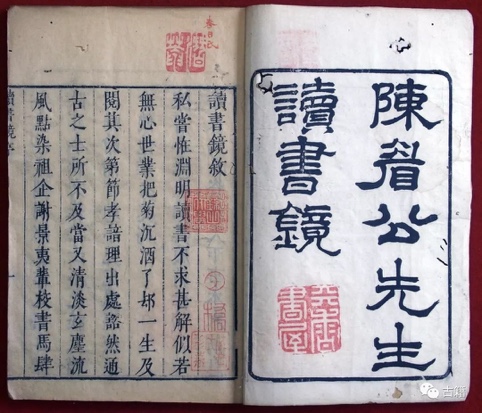 陳眉公先生
讀書鏡
讀書鏡敘
私嘗恠淵明讀書不求甚解似若
無心世業把菊沉酒了却一生及
閱其次第節孝諳理出處谿然通
古之士所不及當又清淡玄塵流
風點染祖企謝景夷輩校書馬肆
讀書鏡
古籍